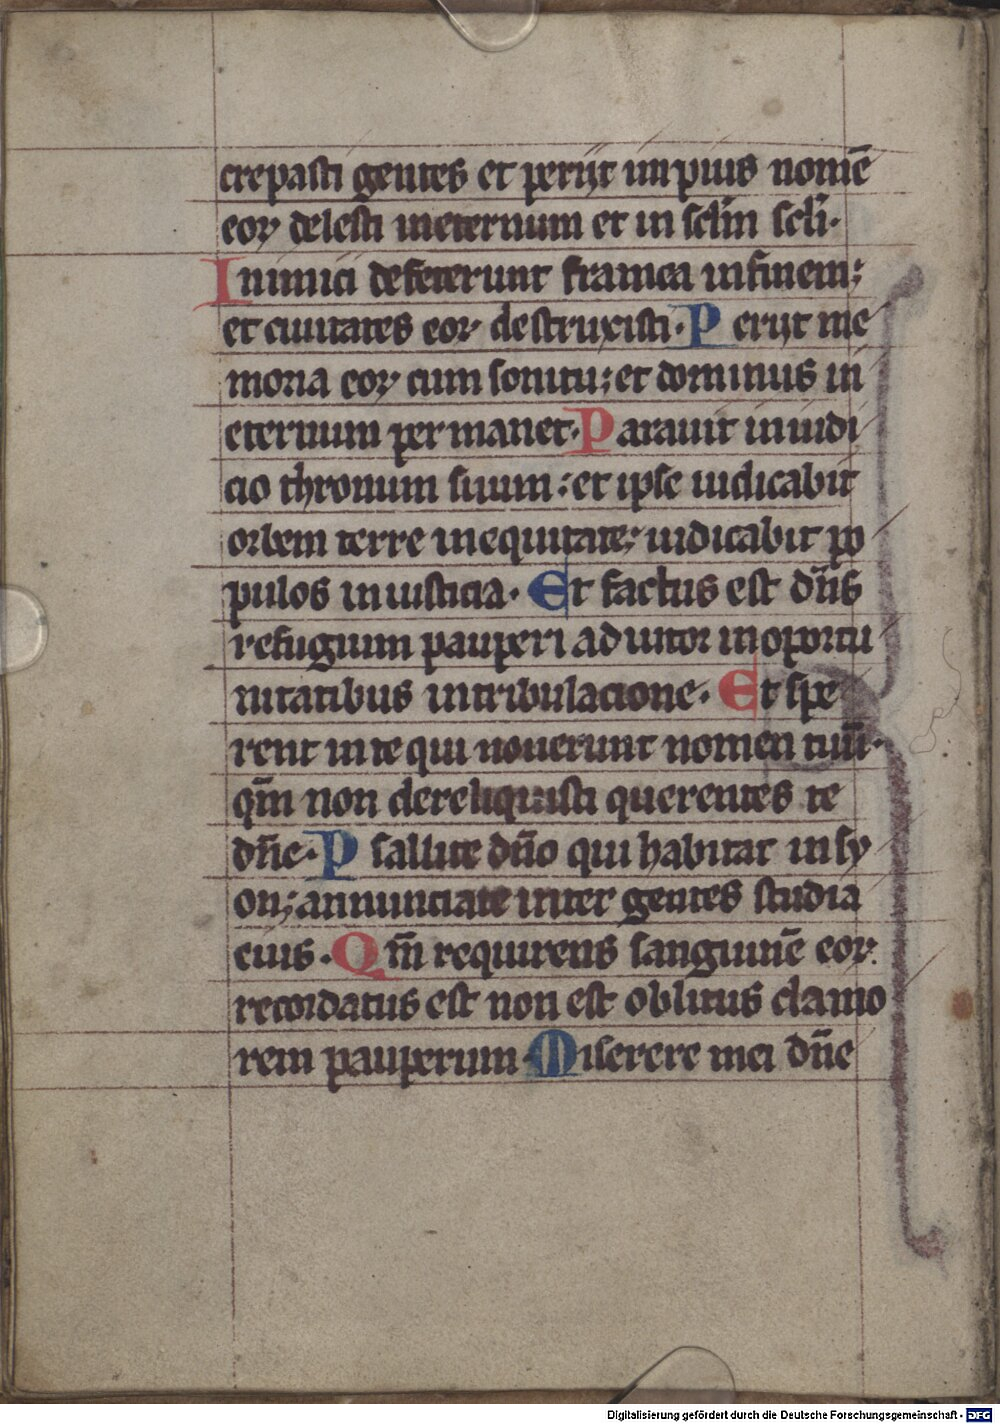 crepasti gentes et perijt impius nomē
eoꝝ delesti ineternum et in sclm̄ scli̅.
Inimici defecerunt framea infinem;
et ciuitates eoꝝ destruxisti. Perijt me
moria eoꝝ cum sonitu; et dominus in
eternum permanet. Parauit iniudi
cio thronum suum: et ipse iudicabit
orbem terre inequitate; iudicabit po
pulos iniusticia. Et factus est dn̄s
refugium pauperi adiutor inoportu
nitatibus intribulacione. Et spe
rent inte qui nouerunt nomen tuū.
qm̄ non dereliquisti querentes te
dn̄e. Psallite dn̄o qui habitat insy
on; annunciate inter gentes studia
eius. Qm̄ requirens sanguinē eoꝝ
recordatus est non est oblitus clamo
rem pauperum. Miserere mei dn̄e
Digitalisierung gefördert durch die Deutsche Forschungsgemeinschaft - DFG